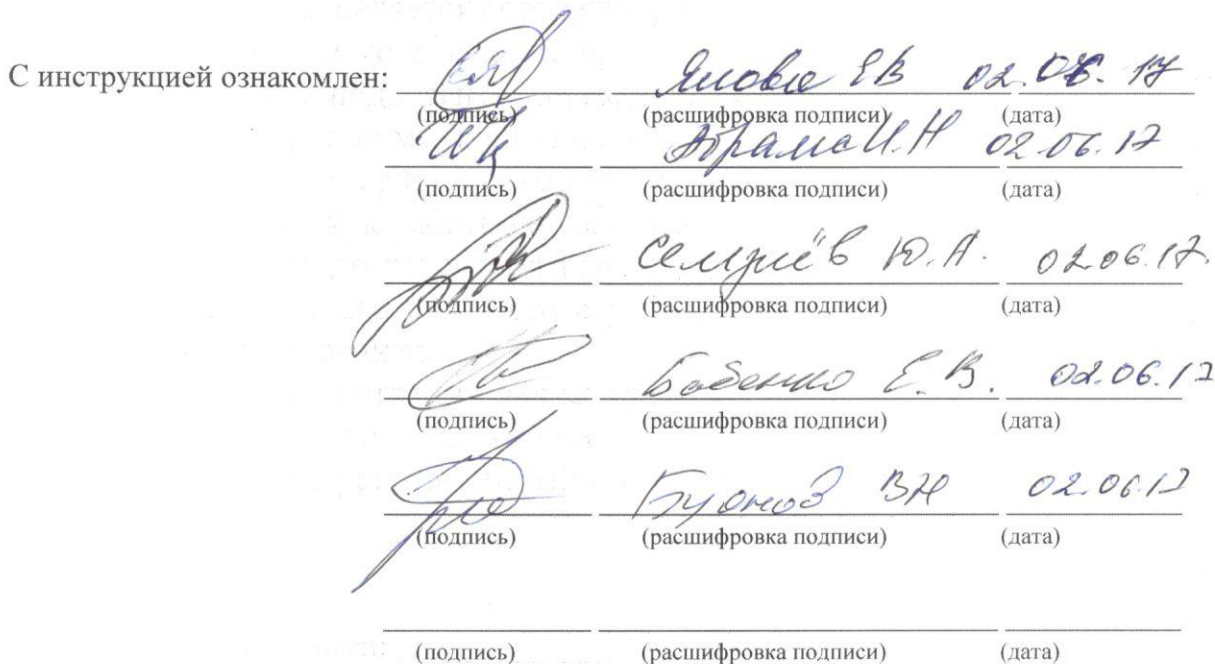 С инструкцией ознакомлен: Яловая ЕВ 02.06.17
(подпись) (расшифровка подписи) (дата)
Абрамс И.Н 02.06.17
(подпись) (расшифровка подписи) (дата)
Ю.А. 02.06.17.
(подпись) (расшифровка подписи) (дата)
Бабенко Е.В. 02.06.17
(подпись) (расшифровка подписи) (дата)
ВН 02.06.17
(подпись) (расшифровка подписи) (дата)
(подпись) (расшифровка подписи) (дата)